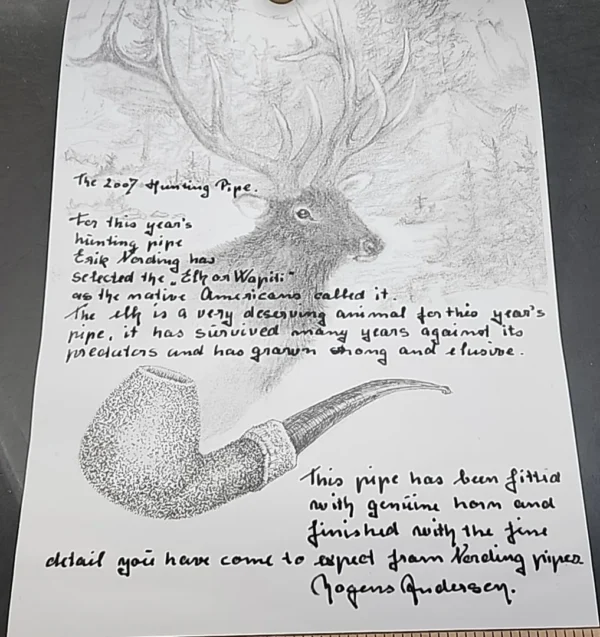 The 2007 Hunting Pipe.
For this year's
hunting pipe
Erik Nørding has
selected the „Elk or Wapiti"
as the native Americans called it.
The elk is a very deserving animal for this year's
pipe, it has survived many years against its
predators and has grown strong and elusive.
This pipe has been fittid
with genuine horn and
finished with the fine
detail you have come to expect from Nørding pipes
Mogens Andersen.